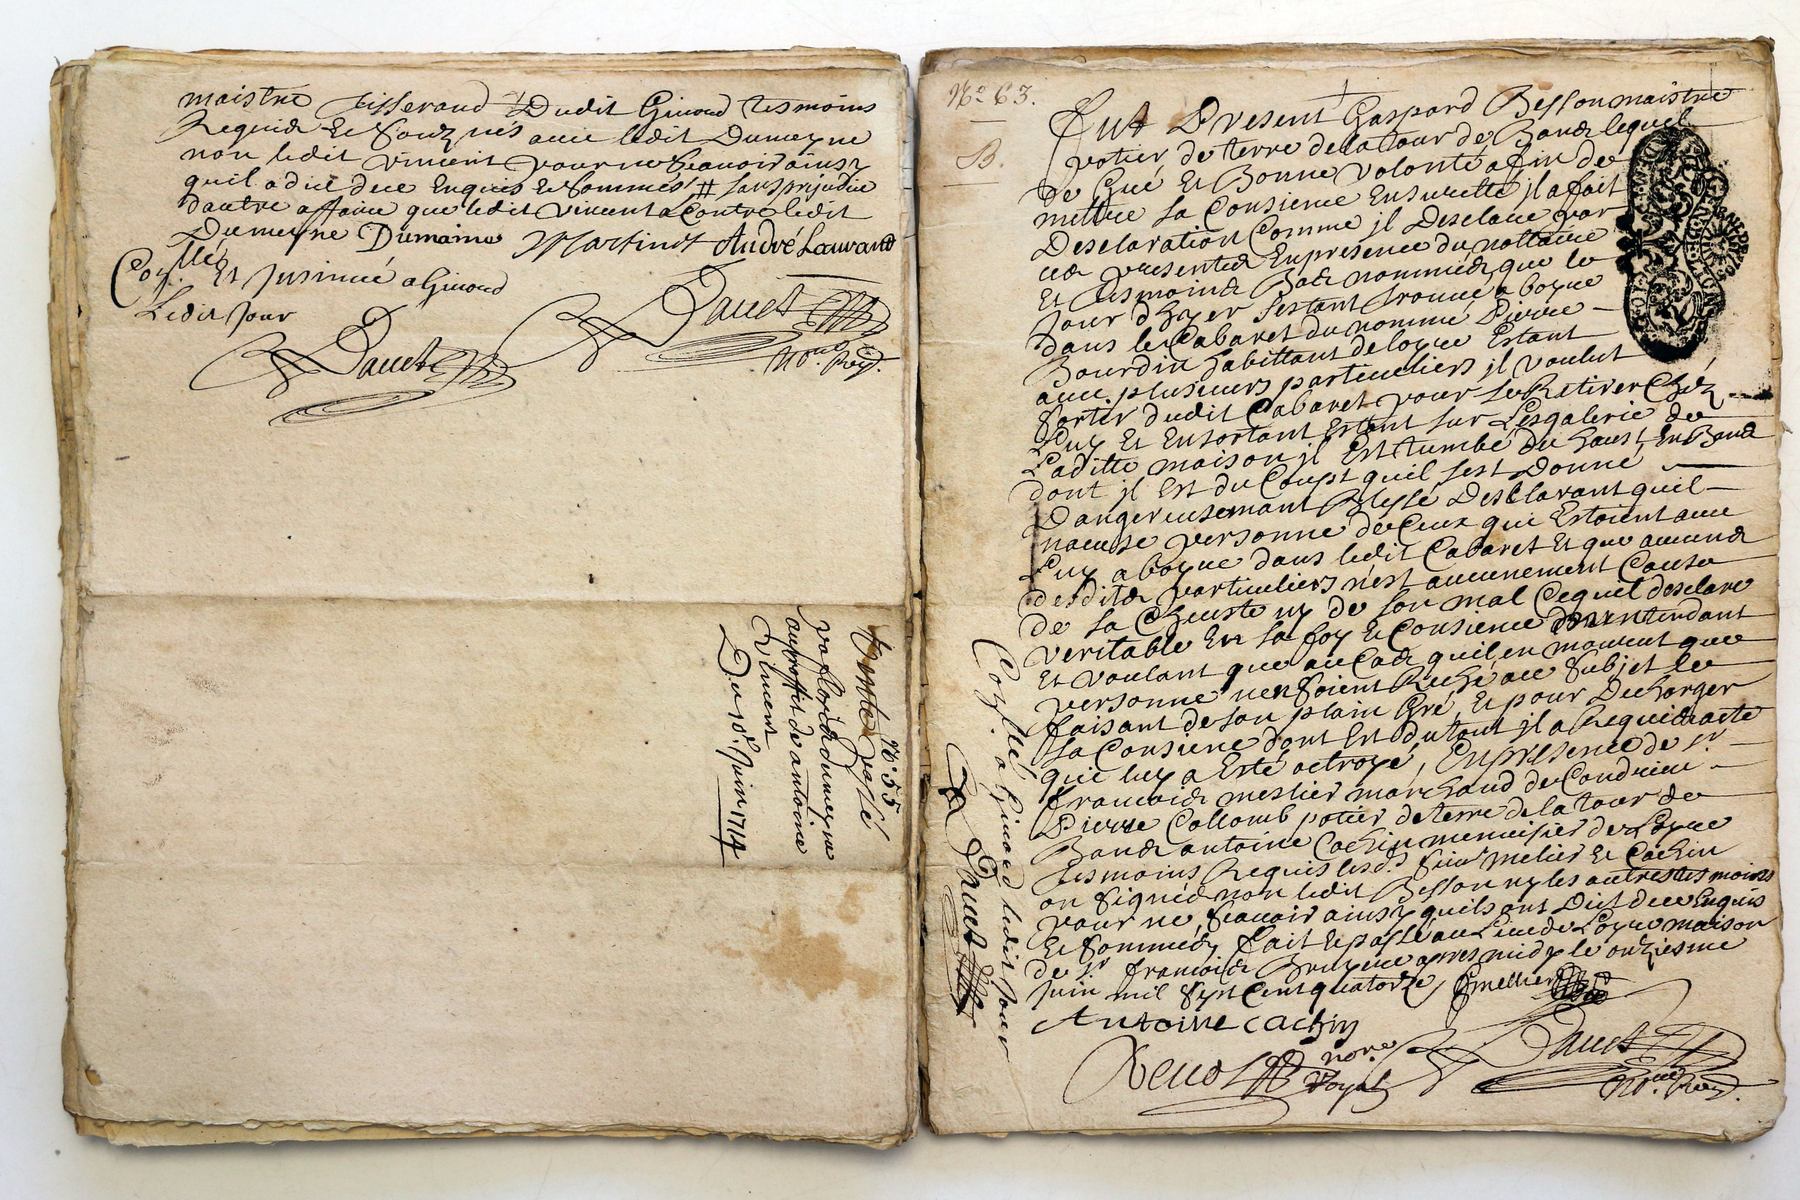 maistre tisserand Dudit Givord tesmoins
Requis Et soubz nés avec ledit Dumeyne
non ledit vincent pour ne sçavoir ainsy
quil a dict de ce Enquis Et sommés # sans prejudice
dautre affaire que ledit vincent a Contre ledit
Dumeyne Dumaine Martinot André Lauvand
Et Insinué a Givord
Ledit Jour
Dauet
Dauet
no.re Roy.
N.º 55
vente passé
par
au proffit de antoine
Vincent
Du 10.e Juin 1714
Nº 63.
B.
Fut Present Gaspard Besson maistre
potier de terre de la tour de Bands lequel
de Gré Et Bonne volonté afin de
mettre sa Consience En surretté jl a fait
Desclaration Comme jl Desclare par
ces presentes En presence du nottaire
Et tesmoins Bas nommés que le
Jour dhyer sestant trouvé a boyue
dans le Cabaret du nommé Pierre
Bourdin habittant de loyue Estant
avec plusieurs particuliers jl voulut
sortir dudit Cabaret pour se Retirer Chéz
Luy Et En sortant Estant sur Les galerie de
Laditte maison jl Est tumbé du haust En Bas
dont jl Est du Coupt quil sest Donné
Dangereusemant Blessé Desclarant quil
nacuse personne de Ceux qui Estoient avec
Luy a boyue dans ledit Cabaret Et que aucuns
desdits particuliers n'est aucunement Cause
de sa Cheuste ny de son mal Ce quel desclare
veritable En sa foy Et Consience
Et voulant que au Cas quil en mourut que
personne nen soient Reché au subjet le
faisant de son plain Gré Et pour Descharger
sa Consience dont Et du tout jl a Requis acte
qui luy a Esté octroyé, En presence de s.r
francois meslier marchand de Condrieu
Pierre Collomb potier de terre de la tour de
Bands antoine Cachin menuisier de Loyue
tesmoins Requis lesd.s sieur melier Et Cachin
on signés non ledit Besson ny les autres tesmoins
pour ne sçavoir ainsy quils ont Dict de ce Enquis
Et sommés, fait Et passé au Lieu de Loyue maison
de s.r francois apres midy le onziesme
Juin mil sept Cent quatorze fmellier
Antoine cachin
no.re
Royal
Dauet
no.re Roy.
a Givord ledit Jour
Dauet